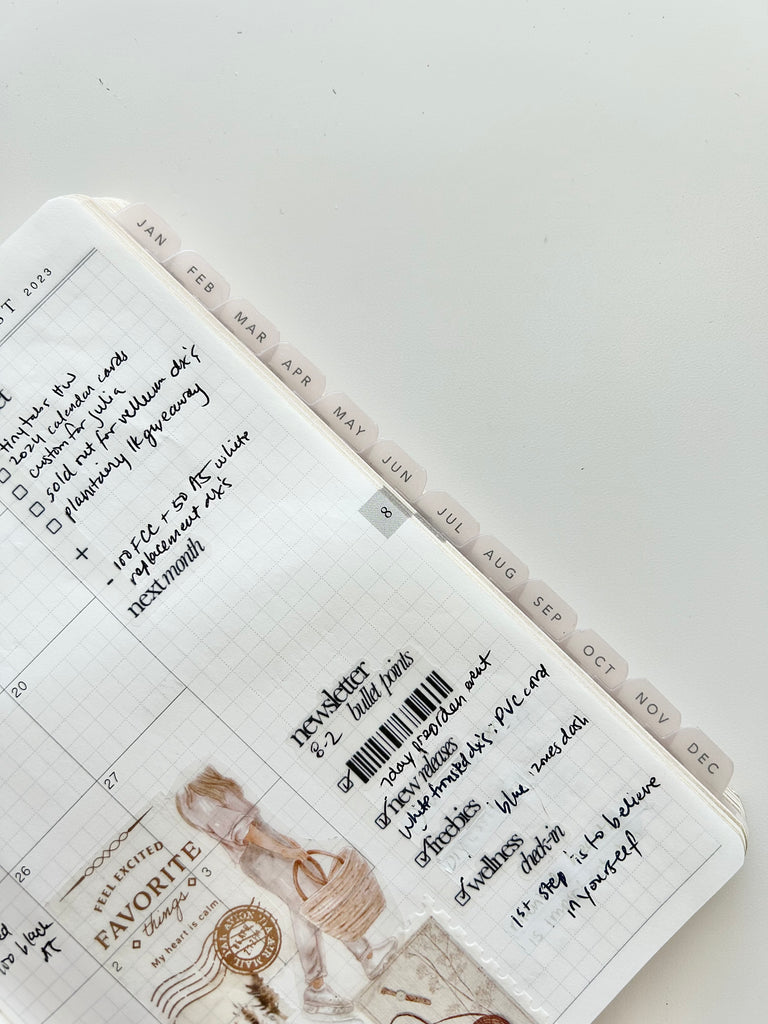 2023
tiny tabs HW
2024 calendar cards
custom for Julia
sold out for vellum dx's
+
- 100 FCC + 50 A5 white
replacement dx's
next month
20
27
26
3
2
8
JAN
FEB
MAR
APR
MAY
JUN
JUL
AUG
SEP
OCT
NOV
DEC
newsletter
bullet points
8.2
7day preorder event
new releases
white frosted dx's; PVC card
freebies
blue
wellness
check-in
1st step is to believe
in yourself
FEEL EXCITED
FAVORITE
things
My heart is calm